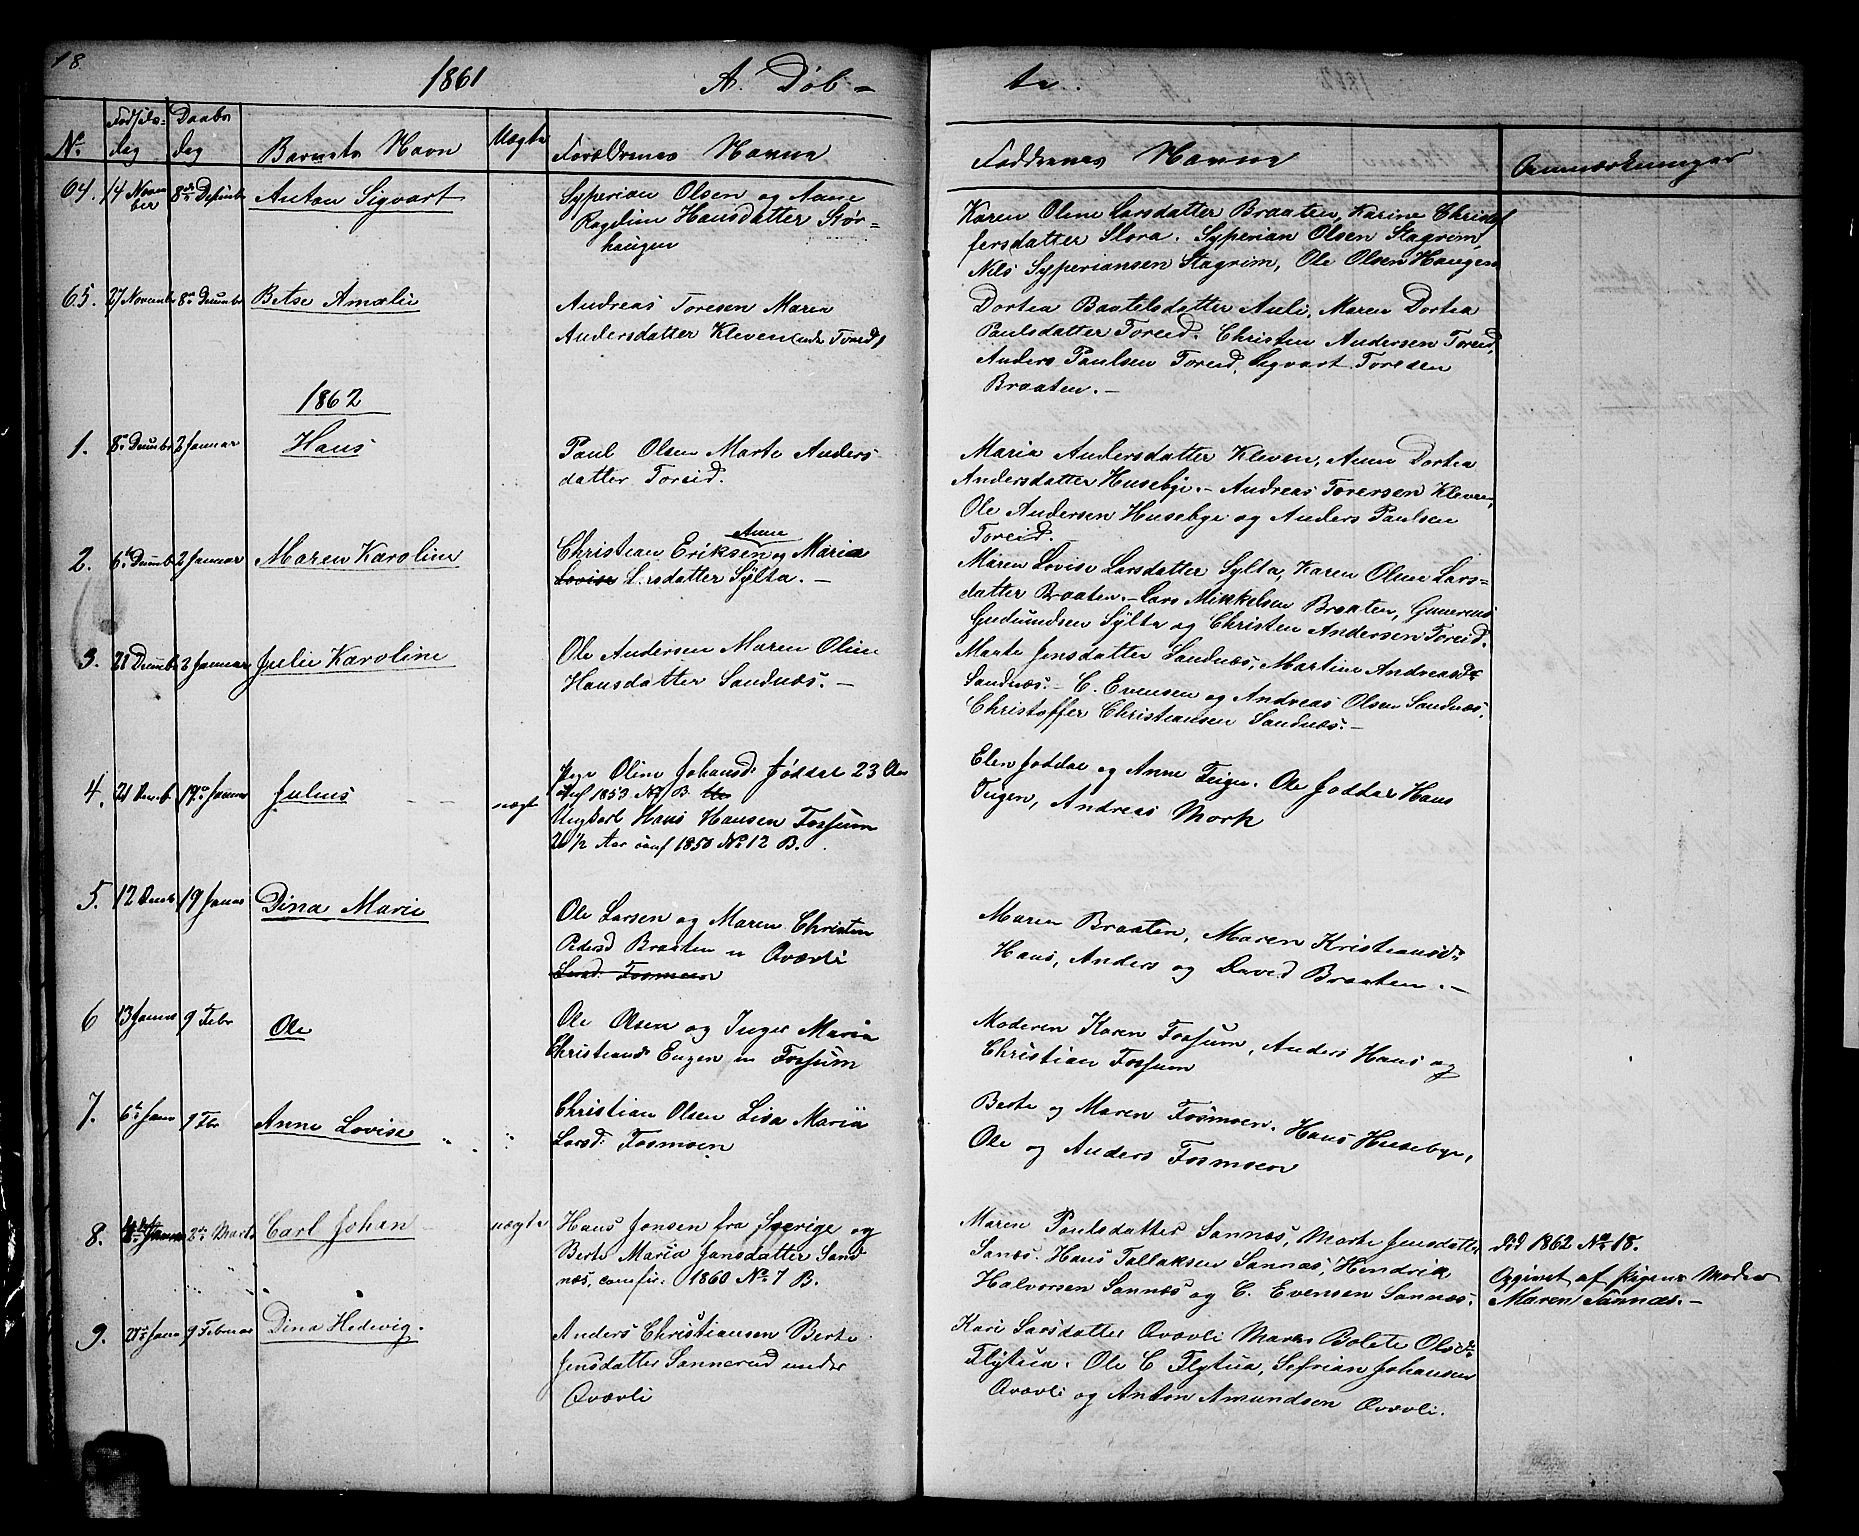 18.
1861 A. Döb- te.
No. Födsels- dag Daabs dag Barnets Navn Uægte Forældrenes Navne Faddrenes Navne Anmærkninger
64. 14 Novem ber 8de Desembr Anton Sigvart
Syperian Olsen og Anne
Rageline Hansdatter Stör-
haugen
Karen Oline Larsdatter Braaten, Karine Christof
fersdatter Slora. Syperian Olsen Stagrim,
Nils Syperiansen Stagrim, Ole Olsen Haugen
65. 27 Novembr 8de Decembr Betse Amalie
Andreas Toresen Maren
Andersdatter Kleven under Toreid
Dortea Baotelsdatter Auli, Maren Dortea
Paulsdatter Toreid. Christen Andersen Toreid,
Anders Paulsen Toreid, Sigvart Toresen
Braaten.-
1862
1. 8de Decembr 2 Januar Hans
Paul Olsen Marte Anders
datter Toreid.
Maria Andersdatter Kleven, Anne Dortea
Andersdatter Husebye.- Andreas Toresen Kleven,
Ole Andersen Husebye og Anders Paulsen
Toreid.
2. 6te Decembr 2 Januar Maren Karoline
Anne
Christian Eriksen og Maria
Lovise Larsdatter Sylta.-
Maren Lovise Larsdatter Sylta, Karen Oline Lars-
datter Braaten.- Lars Mikkelsen Braaten, Gunerius
Gudmundsen Sylta og Christen Andersen Toreid.
3. 21 Decembr 2 Januar Julie Karoline
Ole Andersen Maren Oline
Hansdatter Sandnæs.-
Marte Jensdatter Sandnæs, Martine Andreasdtr
Sandnæs.- C. Evensen og Andreas Olsen Sandnæs,
Christoffer Christiansen Sandnæs.-
4. 21 Decmb 19de Januar Julius uægte
Pige Oline Johansd. Jöddal 23 Aar
Conf 1853 No B.
Ungkarl Hans Hansen Fossum
20½ Aar conf 1850 No 12 B.
Elen Joddal og Anne Teigen. Ole Joddal Hans
Teigen, Andreas Mork
5. 12 Decbr 19 Januar Dina Marie
Ole Larsen og Maren Christen
Pedersd Braaten u Qvævli
Larsd. Fosmoen
Maren Braaten, Maren Kristiansdtr
Hans, Anders og David Braaten.-
6 13 Januar 9 Febr Ole
Ole Olsen og Inger Maria
Christiansd Engen u Fossum
Moderen Karen Fossum, Anders Hans og
Christian Fossum
7. 6te Janu 9 Fbr Anne Lovise
Christian Olsen Lisa Maria
Larsd. Fosmoen
Berte og Maren Fosmoen. Hans Husebye,
Ole og Anders Fosmoen
8. Januar 2de Marts Carl Johan uægte
Hans Jonsen fra Sverige og
Berte Maria Jansdatter Sand
næs, confir. 1860 No 7 B.
Maren Paulsdatter Sannæs, Marte Jensdatter
Sanæs. Hans Tollaksen Sannæs, Hendrik
Halvorsen Sannæs og C. Evensen Sannæs.
död 1862 No 18.
Opgivet af Pigens Moder
Maren Sannæs.-
9. 21de Janu 9 Februar Dina Hedevig.
Anders Christiansen Berte
Jensdatter Sannerud under
Qvævli
Kari Larsdatter Qvævli Maren Bolete Olsdtr
Flytua. Ole C Flytua, Sefrian Johansen
Qvævli og Anton Amundsen Qvævli.